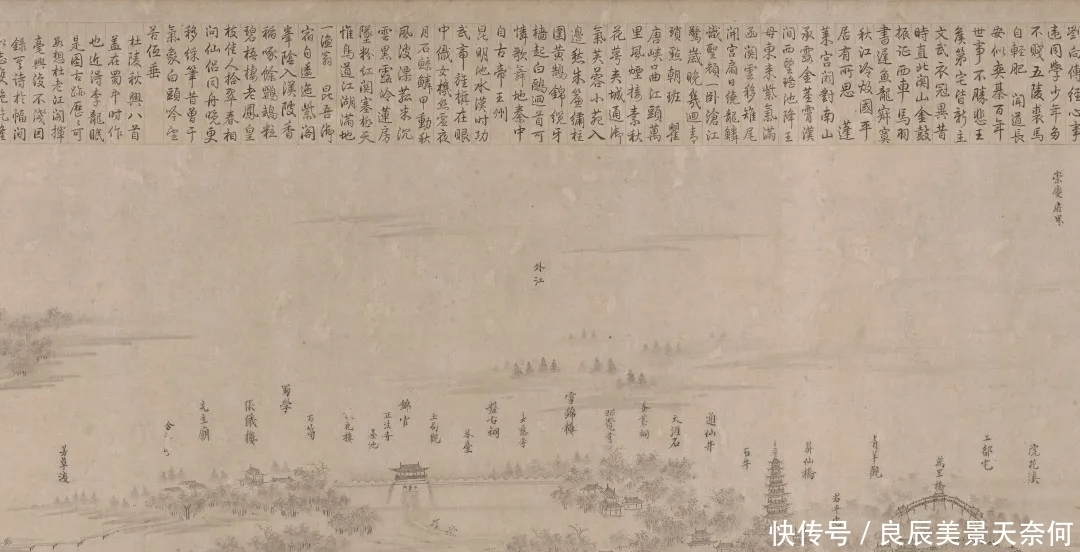 劉向傳經心事
遠同學少年多
不賤五陵裘馬
自輕肥 聞道長
安似奕碁百年
世事不勝悲王
矦第宅皆新主
文武衣冠異昔
時直北關山金鼓
振征西車馬羽
書遲魚龍寂寞
秋江冷故國平
居有所思 蓬
萊宮闕對南山
承露金莖霄漢
間西望瑤池降王
母東來紫氣滿
函關雲移雉尾
開宮扇日繞龍鱗
識聖顏一卧滄江
驚歲晚幾迴青
瑣點朝班 瞿
唐峽口曲江頭萬
里風煙接素秋
花萼夾城通御
氣芙蓉小苑入
邊愁朱簾繡柱
圍黃鵠錦纜牙
檣起白鷗迴首可
憐歌舞地秦中
自古帝王州
昆明池水漢時功
武帝旌旗在眼
中織女機絲虛夜
月石鯨鱗甲動秋
風波漂菰米沉
雲黑露冷蓮房
墜粉紅關塞極天
惟鳥道江湖滿地
一漁翁 昆吾御
宿自逶迤紫閣
峯陰入渼陂香
稻啄餘鸚鵡粒
碧梧棲老鳳皇
枝佳人拾翠春相
問仙侶同舟晚更
移綵筆昔曾干
氣象白頭吟望
苦低垂
杜陵秋興八首
蓋在蜀平時作
也近得李龍眠
是圖古跡歷歷可
想杜老江閣揮
毫興復不淺因
錄其詩於幅間
崇慶府界
外江
浣花溪
工部宅
萬里橋
青羊觀
昇仙橋
通仙井
天涯石
雪錦樓
大慈寺
盤古祠
錦官
正法寺
墨池
蜀學
張儀樓
先主廟
快传号 / 良辰美景天奈何